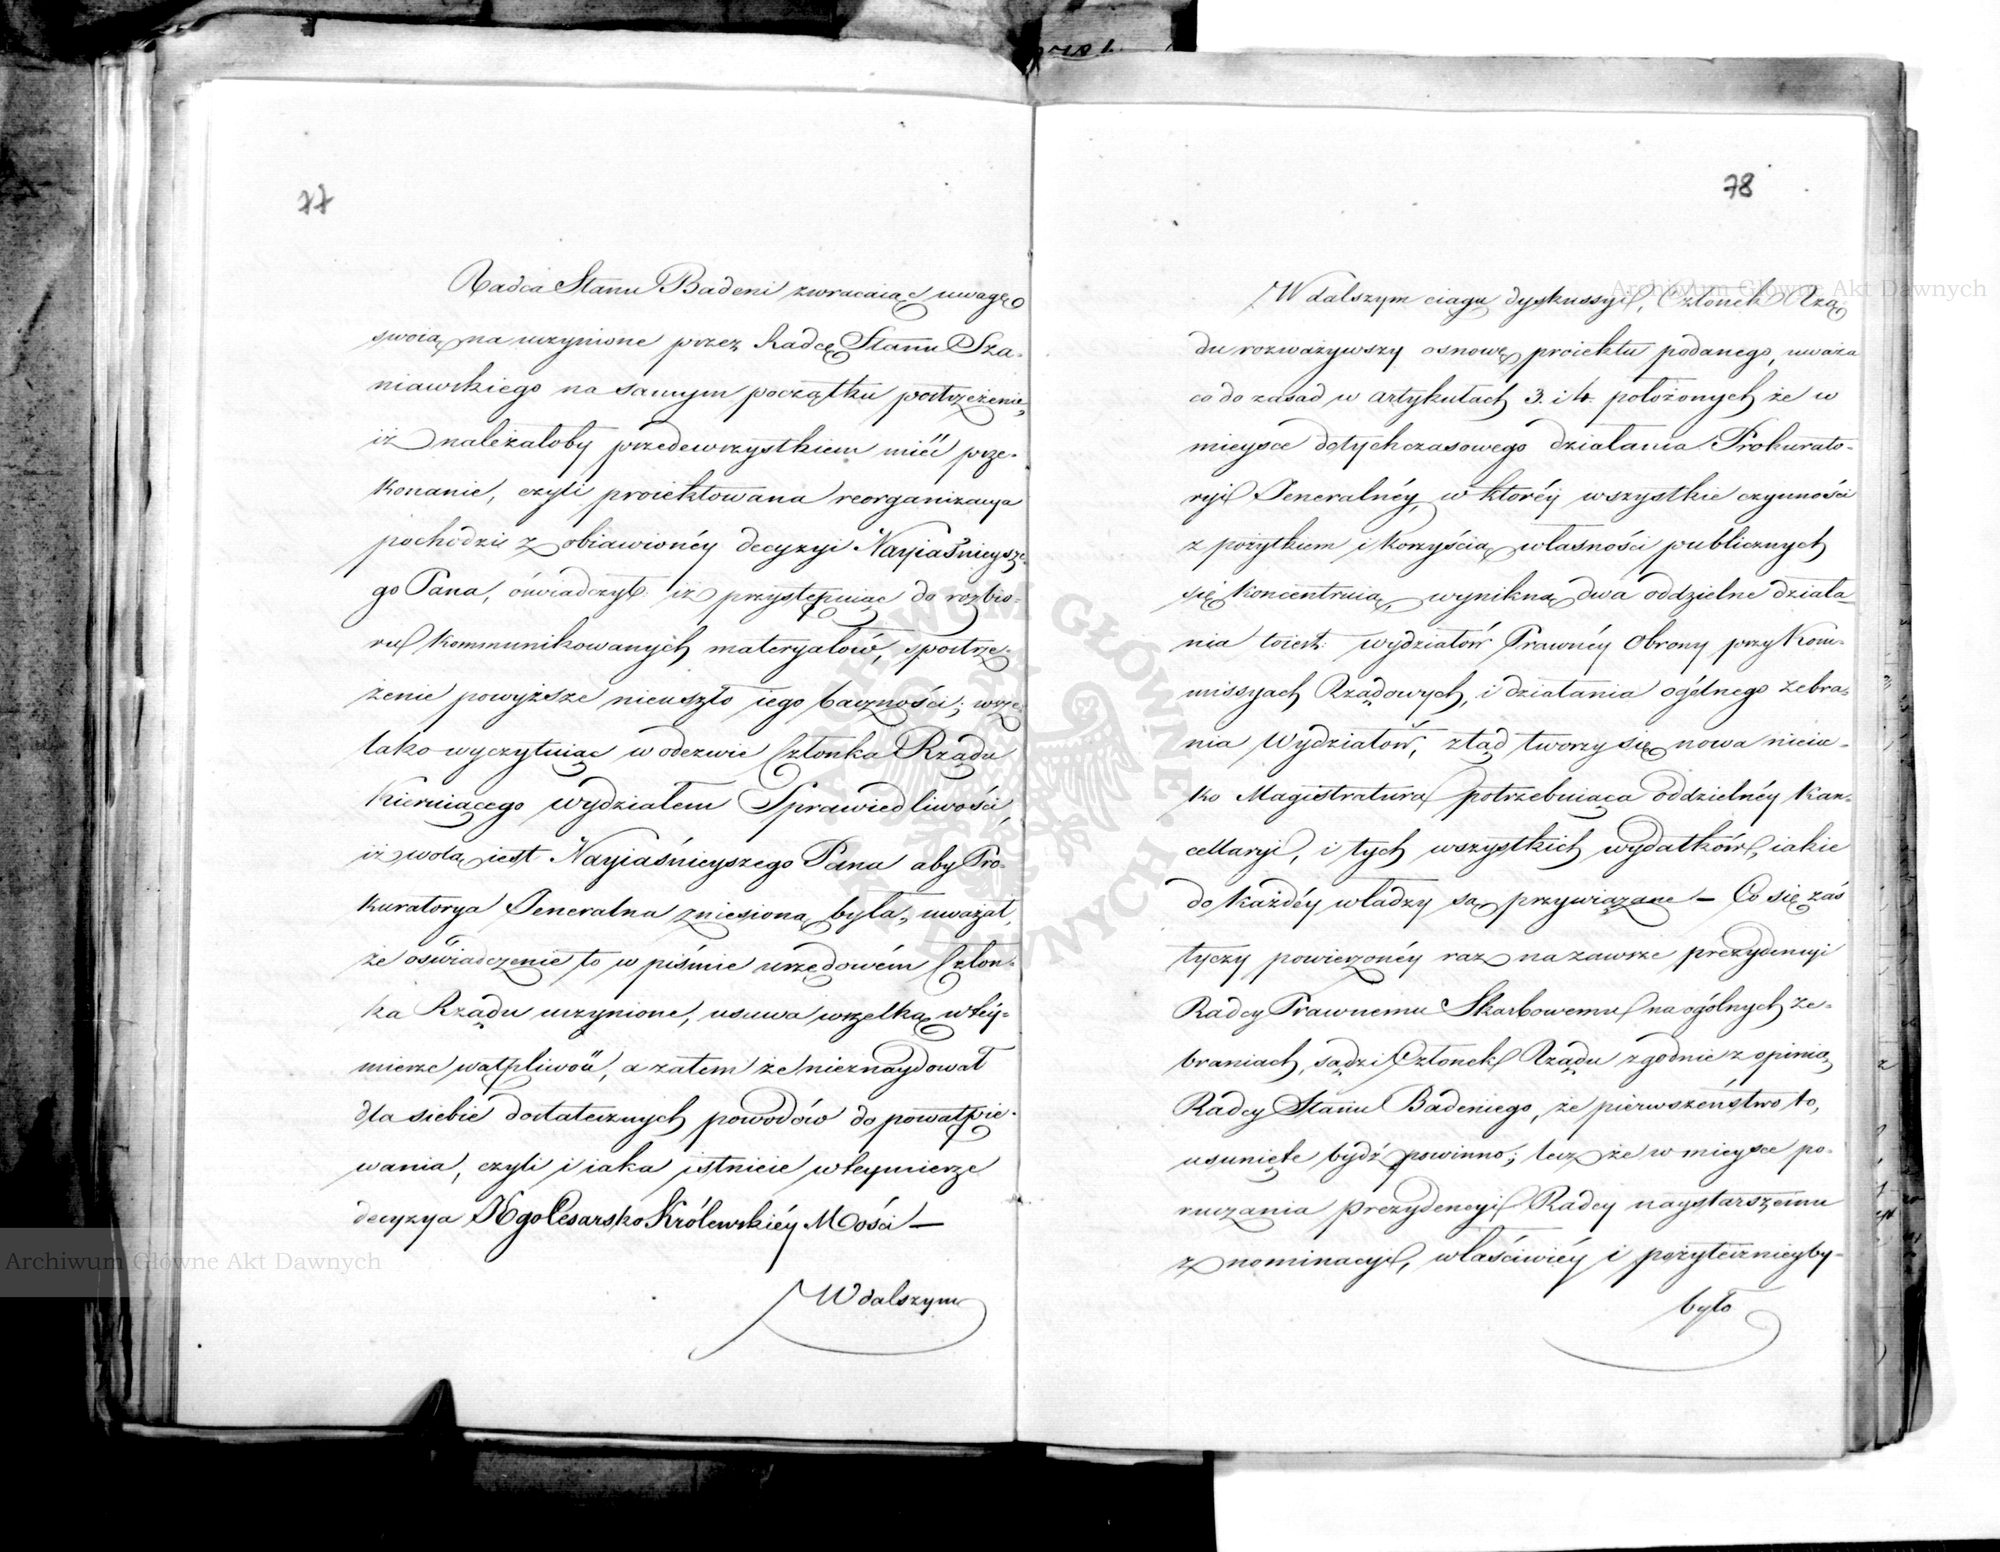 77
Radca Stanu Badeni zwracaiąc uwagę
swoią na uczynione przez Radcę Stanu Sza-
niawskiego na samym początku postrzeżenie,
iż należałoby przedewszystkiem mieć prze-
konanie, czyli proiektowana reorganizacya
pochodzi z obiawionéy decyzyi Nayiaśnieysze-
go Pana, oświadczył iż przystępuiąc do rozbio-
ru kommunikowanych materyałów, spostrze-
żenie powyższe nieuszło iego baczności; wsze-
lako wyczytuiąc w odezwie Członka Rządu
kieruiącego wydziałem Sprawiedliwości,
iż wolą iest Nayiaśnieyszego Pana aby Pro-
kuratorya Jeneralna zniesioną była, uważał,
że oświadczenie to w piśmie urzędowém Człon-
ka Rządu uczynione, usuwa wszelką w téy-
mierze wątpliwość, a zatem że nieznaydował
dla siebie dostatecznych powodów do powątpie-
wania, czyli i iaka istnieie w teymierze
decyzya J<sup></sup>go Cesarsko Królewskiéy Mości —
W dalszym
78
W dalszym ciągu dyskussyi, Członek Rzą-
du rozważywszy osnowę proiektu podanego, uważa
co do zasad w artykułach 3. i 4. położonych że w
mieysce dotychczasowego działania Prokurato-
ryi Jeneralnéy, w któréy wszystkie czynności
z pożytkiem i korzyścią własności publicznych
się koncentruią, wynikną dwa oddzielne działa-
nia toiest: wydziałów Prawnéy Obrony przy Kom-
missyach Rządowych, i działania ogólnego zebra-
nia Wydziałów, ztąd tworzy się nowa nieia-
ko Magistratura potrzebuiąca oddzielnéy kan-
cellaryi, i tych wszystkich wydatków, iakie
do każdéy władzy są przywiązane — Co się zaś
tyczy powierzonéy raz na zawsze prezydencyi
Radcy Prawnemu Skarbowemu na ogólnych ze-
braniach, sądzi Członek Rządu zgodnie z opinią
Radcy Stanu Badeniego, że pierwszeństwo to,
usunięte bydź powinno; lecz że w mieysce po-
ruczania prezydencyi Radcy naystarszemu
z nominacyi, właściwiéy i pożyteczniey by-
było
Archiwum Główne Akt Dawnych
Archiwum Główne Akt Dawnych
ARCHIWUM GŁÓWNE AKT DAWNYCH